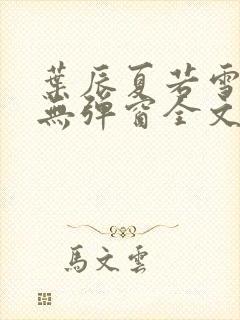 葉辰夏若雪
無彈窗全文
馬文雲